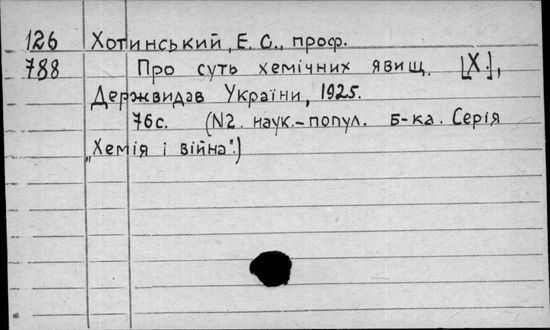 126 Хотинський, Е. С., проф.
788 Про суть хемічних явищ. [Х.],
Держвидав України, 1925.
76с. (N2. наук.-попул. б-ка. Серія
„Хемія і війна".)